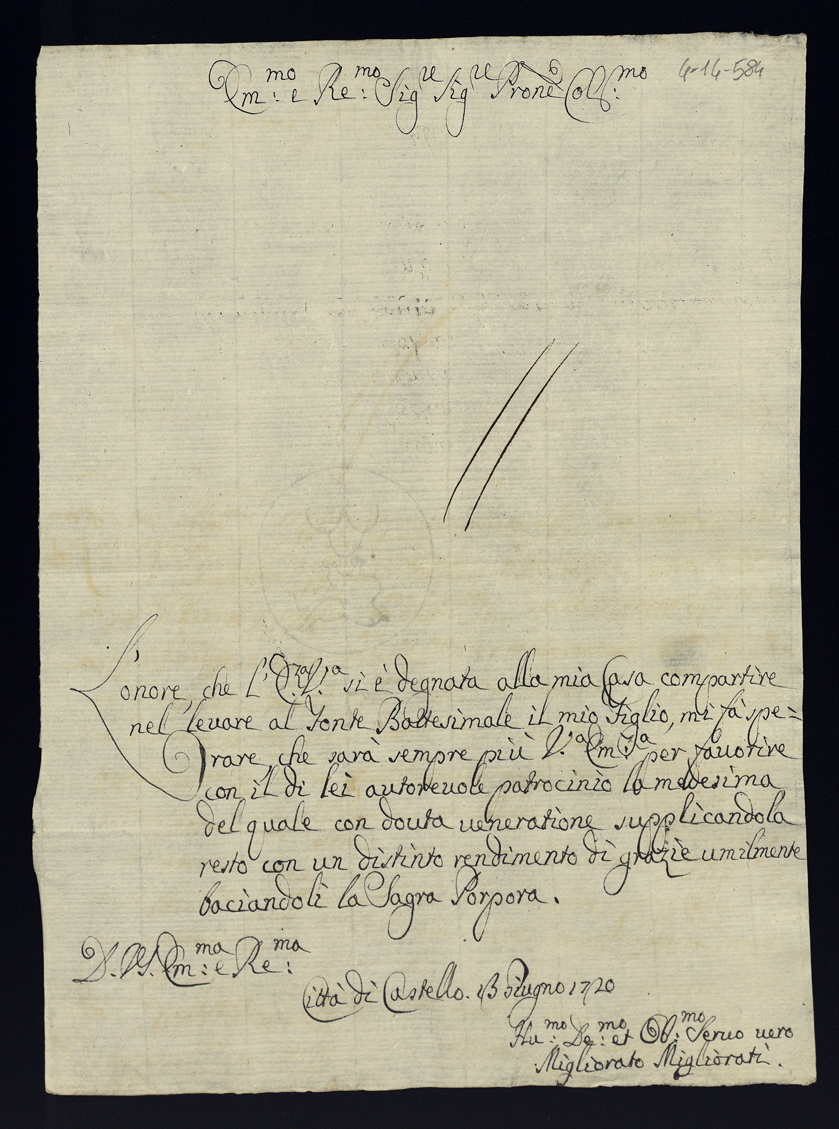 Em:mo e Re:mo Sig.re Sig.re Prone Coll:mo 4-14-584
L'onore, che l'E.za V.ra si è degnata alla mia Casa compartire
nel levare al Fonte Battesimale il mio Figlio, mi fà spe=
rare, che sarà sempre più V.a Em:za per favorire
con il di lei autorevole patrocinio la medesima
del quale con douta veneratione supplicandola
resto con un distinto rendimento di grazie umilmente
baciandoli la Sagra Porpora.
D. V.S. Em:ma e Re:ma
Città di Castello. 13 Giugno 1720
Hu:mo De:mo et Ob:mo Seruo uero
Migliorato Migliorati.